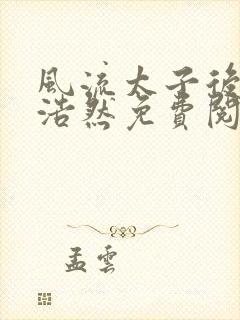 風流太子後
浩然免費閱
孟雲